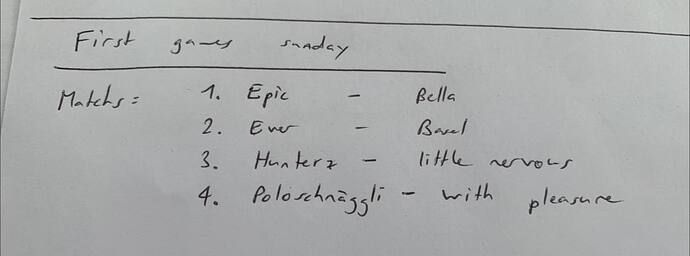 First games sunday
Matchs:
1. Epic - Bella
2. Ever - Basel
3. Hunterz - little nervous
4. Poloschnäggli - with pleasure